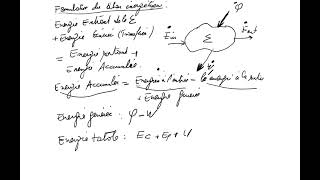 Formulation du bilan énergétique :
Energie Entrant dans Ɛ
+ Energie Générée (Transférée)
= Energie sortant +
Energie Accumulée.
Energie Accumulée = Energie à l'entrée - l'énergie à la sortie
+ Energie générée
Energie générée : φ - W
Energie totale : Ec + Ep + U
φ
Ėin
Ɛ
Ėout